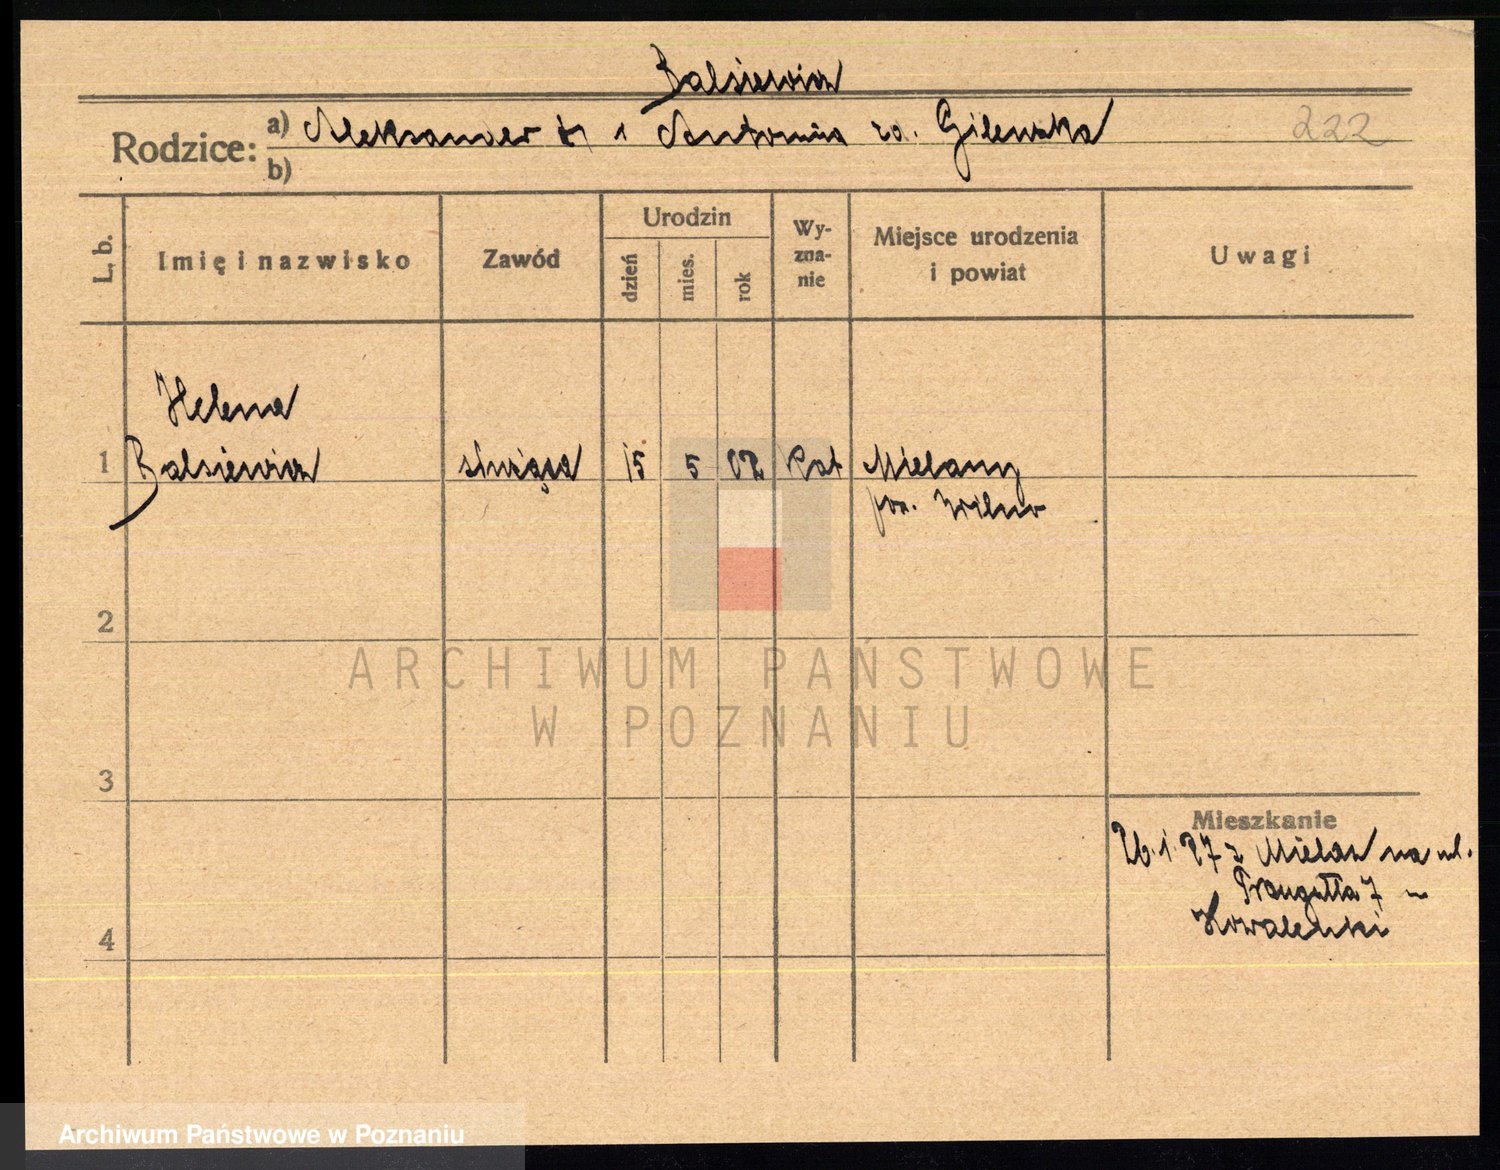 Balsiewicz
Rodzice: a) Aleksander i Antonina zd. Gilewska 222
b)
L. b. Imię i nazwisko Zawód Urodzin dzień mies. rok Wyzna-nie Miejsce urodzenia i powiat Uwagi
Helena
1 Balsiewicz służąca 15 5 02 Kat Mielany
pow. Wilno
2
ARCHIWUM PAŃSTWOWE
W POZNANIU
3
Mieszkanie
26.1.27 z na ul.
Traugutta 7
4 Kowalenki
Archiwum Państwowe w Poznaniu